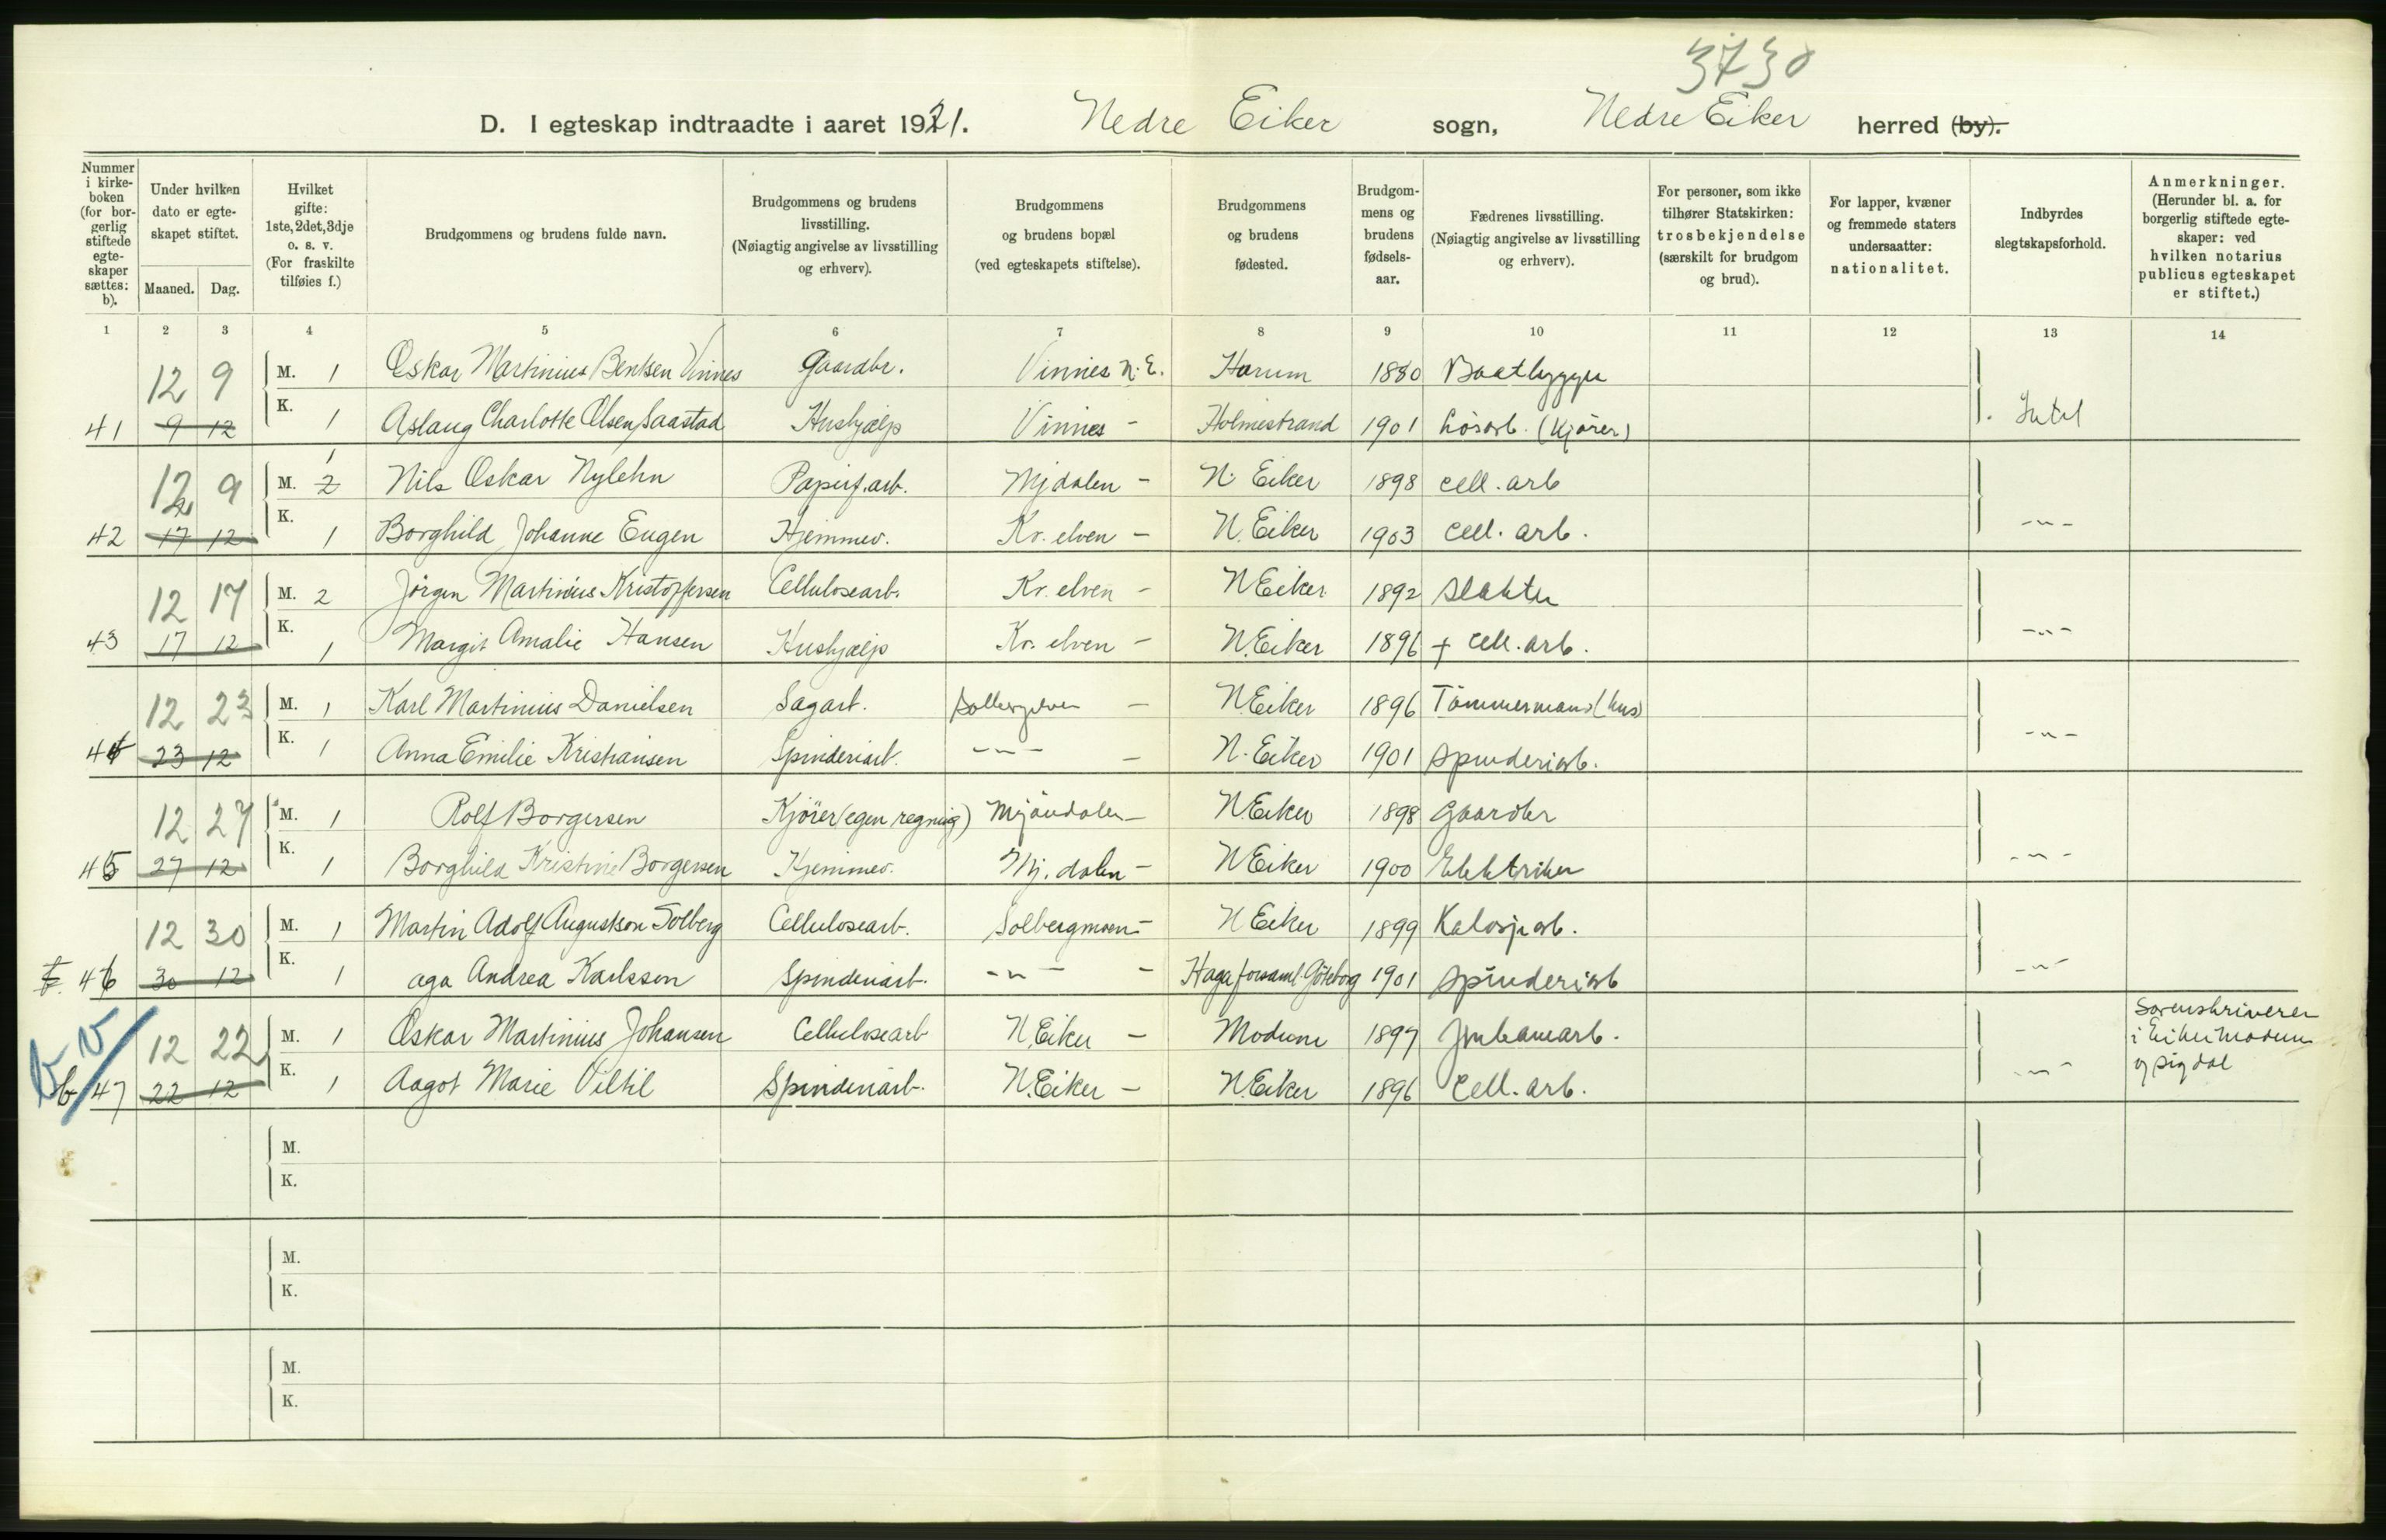 3730
D. I egteskap indtraadte i aaret 1921. Nedre Eiker sogn, Nedre Eiker herred (by).
Nummer i kirkeboken (for borgerlig stiftede egteskaper sættes: b).
Under hvilken dato er egteskapet stiftet.
Maaned. Dag.
Hvilket gifte: 1ste, 2det, 3dje o. s. v. (For fraskilte tilføies f.)
Brudgommens og brudens fulde navn.
Brudgommens og brudens livsstilling. (Nøiagtig angivelse av livsstilling og erhverv).
Brudgommens og brudens bopæl (ved egteskapets stiftelse).
Brudgommens og brudens fødested.
Brudgommens og brudens fødselsaar.
Fædrenes livsstilling. (Nøiagtig angivelse av livsstilling og erhverv).
For personer, som ikke tilhører Statskirken: trosbekjendelse (særskilt for brudgom og brud).
For lapper, kvæner og fremmede staters undersaatter: nationalitet.
Indbyrdes slegtskapsforhold.
Anmerkninger. (Herunder bl. a. for borgerlig stiftede egteskaper: ved hvilken notarius publicus egteskapet er stiftet.)
1 2 3 4 5 6 7 8 9 10 11 12 13 14
12 9 M. 1 Oskar Martinius Bentsen Vinnes Gaardbr. Vinnes N.E. Hurum 1880 Baatbygger
41 9 12 K. 1 Aslaug Charlotte Olsen Saastad Hushjælp Vinnes - Holmestrand 1901 Løsarb. (Kjører) Intet
12 9 M. 2 1 Nils Oskar Nylehn Papirf.arb. Mjdalen - N. Eiker 1898 cell. arb
42 17 12 K. 1 Borghild Johanne Eugen Hjemmev. Kr. elven - N. Eiker 1903 cell. arb. -"-
12 17 M. 2 Jørgen Martinius Kristoffersen Cellulosearb. Kr. elven - N Eiker 1892 Slakter
43 17 12 K. 1 Margit Amalie Hansen Hushjælp Kr. elven - N. Eiker 1896 + cell. arb. -"-
12 23 M. 1 Karl Martinius Danielsen Sagarb. Solbergelven - N. Eiker 1896 Tømmermand (hus)
44 23 12 K. 1 Anna Emilie Kristiansen Spinderiarb. -"- - N. Eiker 1901 Spinderiarb. -"-
12 27 M. 1 Rolf Borgersen Kjører (egen regning) Mjøndalen - N. Eiker 1898 Gaardbr
45 27 12 K. 1 Borghild Kristine Borgersen Hjemmev. Mj. dalen - N Eiker 1900 Elektriker -"-
12 30 M. 1 Martin Adolf Augustson Solberg Cellulosearb. Solbergmoen - N Eiker 1899 Kalosjearb.
46 30 12 K. 1 Aga Andrea Karlsson Spinderiarb. -"- - Haga forsaml. Göteborg 1901 Spinderiarb -"-
12 22 M. 1 Oskar Martinius Johansen Cellulosearb N. Eiker - Modum 1897 Jernbanearb. Sorenskriveren
b 47 22 12 K. 1 Aagot Marie Viltil Spinderiarb. N. Eiker - N. Eiker 1896 Cell. arb. -"- i Eiker Modum
og Sigdal
M.
K.
M.
K.
M.
K.